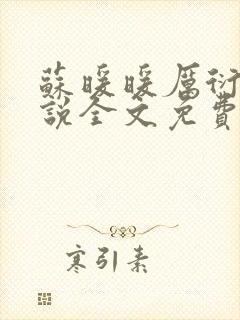 蘇暖暖厲衍
說全文免費
寒引素